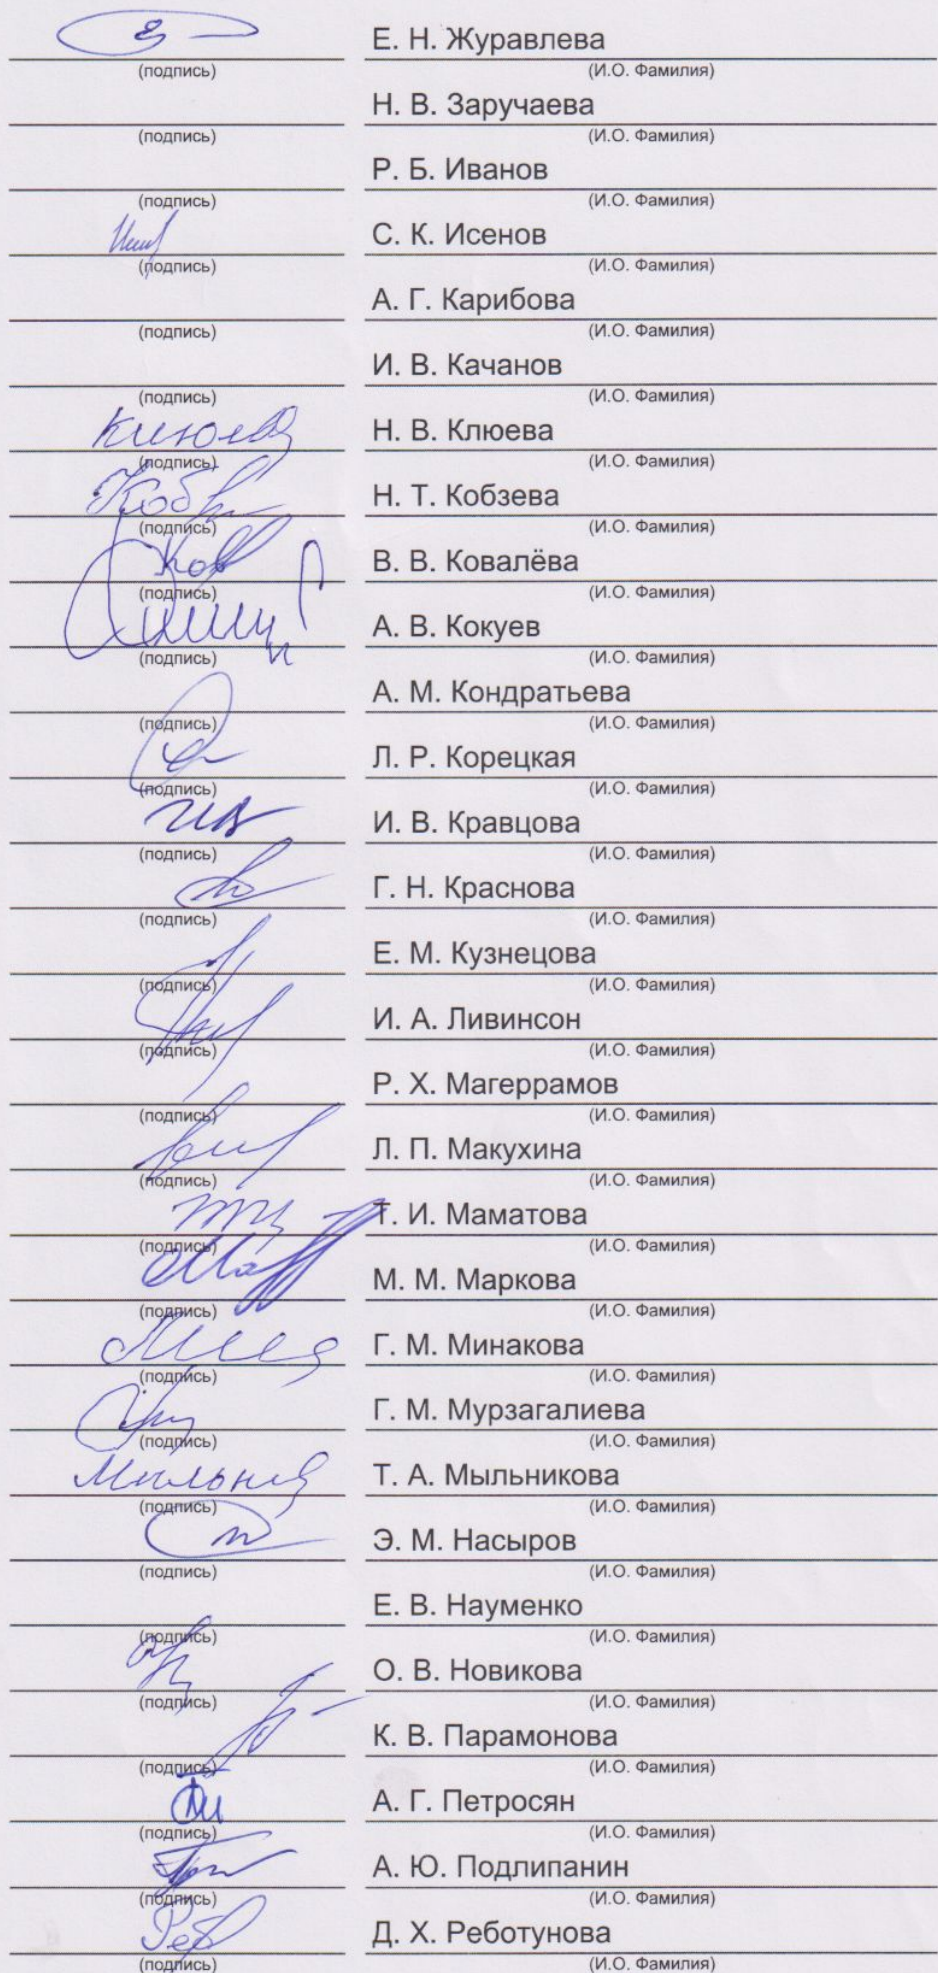 Е. Н. Журавлева
(подпись) (И.О. Фамилия)
Н. В. Заручаева
(подпись) (И.О. Фамилия)
Р. Б. Иванов
(подпись) (И.О. Фамилия)
С. К. Исенов
(подпись) (И.О. Фамилия)
А. Г. Карибова
(подпись) (И.О. Фамилия)
И. В. Качанов
(подпись) (И.О. Фамилия)
Н. В. Клюева
(подпись) (И.О. Фамилия)
Н. Т. Кобзева
(подпись) (И.О. Фамилия)
В. В. Ковалёва
(подпись) (И.О. Фамилия)
А. В. Кокуев
(подпись) (И.О. Фамилия)
А. М. Кондратьева
(подпись) (И.О. Фамилия)
Л. Р. Корецкая
(подпись) (И.О. Фамилия)
И. В. Кравцова
(подпись) (И.О. Фамилия)
Г. Н. Краснова
(подпись) (И.О. Фамилия)
Е. М. Кузнецова
(подпись) (И.О. Фамилия)
И. А. Ливинсон
(подпись) (И.О. Фамилия)
Р. Х. Магеррамов
(подпись) (И.О. Фамилия)
Л. П. Макухина
(подпись) (И.О. Фамилия)
Т. И. Маматова
(подпись) (И.О. Фамилия)
М. М. Маркова
(подпись) (И.О. Фамилия)
Г. М. Минакова
(подпись) (И.О. Фамилия)
Г. М. Мурзагалиева
(подпись) (И.О. Фамилия)
Т. А. Мыльникова
(подпись) (И.О. Фамилия)
Э. М. Насыров
(подпись) (И.О. Фамилия)
Е. В. Науменко
(подпись) (И.О. Фамилия)
О. В. Новикова
(подпись) (И.О. Фамилия)
К. В. Парамонова
(подпись) (И.О. Фамилия)
А. Г. Петросян
(подпись) (И.О. Фамилия)
А. Ю. Подлипанин
(подпись) (И.О. Фамилия)
Д. Х. Реботунова
(подпись) (И.О. Фамилия)